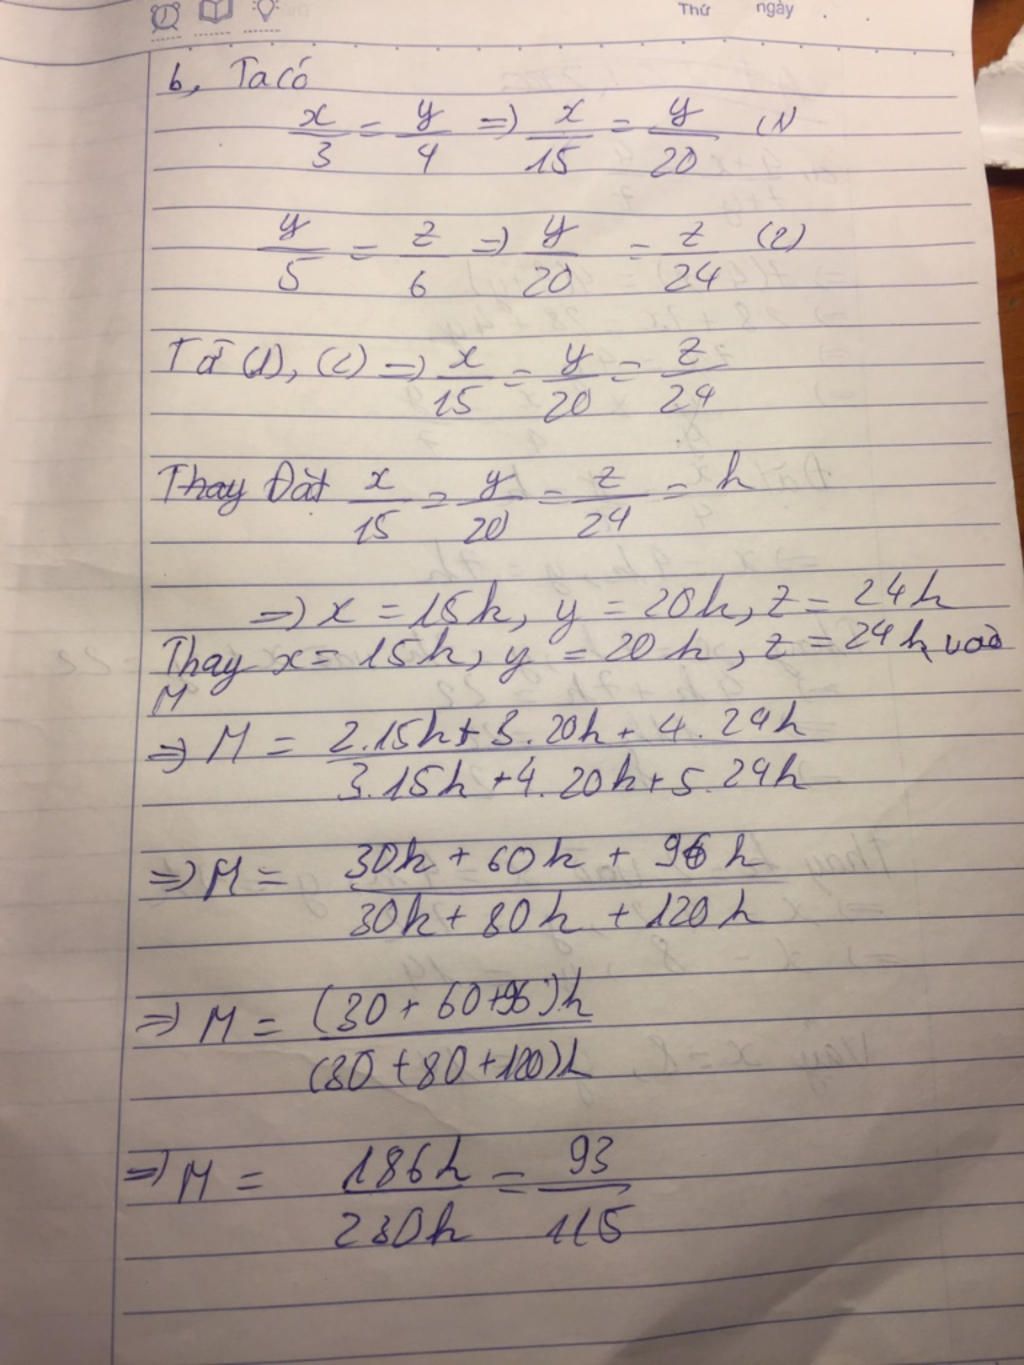 Thứ ngày
b, Ta có
x/3 = y/4 => x/15 = y/20 (1)
y/5 = z/6 => y/20 = z/24 (2)
Từ (1), (2) => x/15 = y/20 = z/24
Thay Đặt x/15 = y/20 = z/24 = k
=> x = 15k, y = 20k, z = 24k
Thay x = 15k, y = 20k, z = 24k vào
M
=> M = 2.15k + 3.20k + 4.24k / 3.15k + 4.20k + 5.24k
=> M = 30k + 60k + 96k / 30k + 80k + 120k
=> M = (30 + 60 + 96).k / (30 + 80 + 120)k
=> M = 186k / 230k = 93 / 115